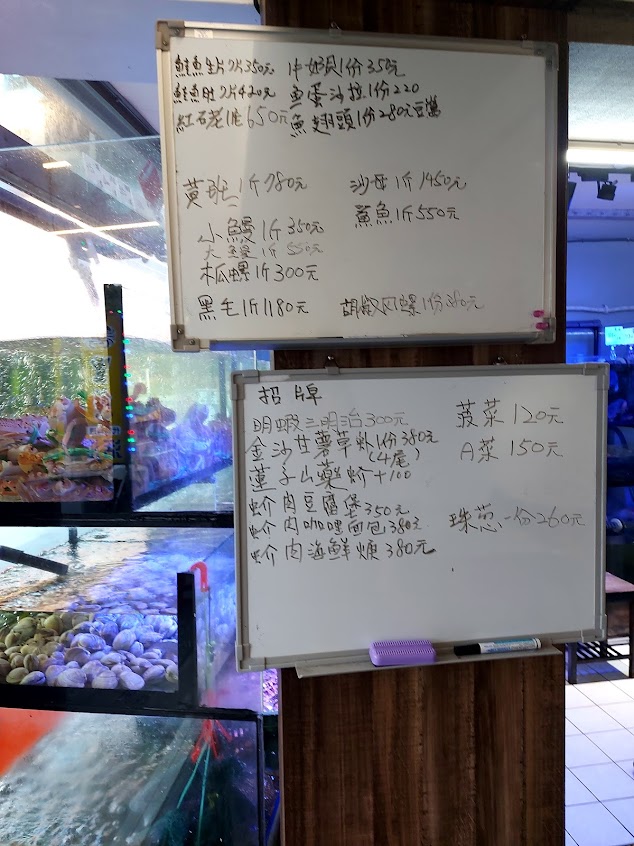 鮭魚生片7片350元
中奶貝1份350元
鮭魚肚7片420元
魚蛋沙拉1份220
紅石花1隻650元
魚翅頭1份280元
黃斑1斤780元
沙母1斤1450元
小鰻1斤350元
鯊魚1斤550元
大鰻1斤550元
木瓜螺1斤300元
黑毛1斤1180元
胡椒风螺1份380元
招牌
明蝦三明治300元
菠菜120元
金沙甘薯草虾1份380元
(4尾)
A菜150元
蓮子山藥蚧+100
蚧肉豆腐堡350元
蚧肉咖哩面包380元
珠葱一份260元
蚧肉海鮮焿380元